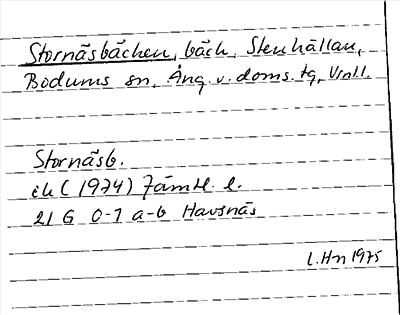 Stornäsbäcken, bäck, Stenhällan,
Bodums sn, Ång. v. doms. tg, Vnll.
Stornäsb.
ek (1974) Jämtl. l.
21 G 0-1 a-b Havsnäs
L.Hn 1975